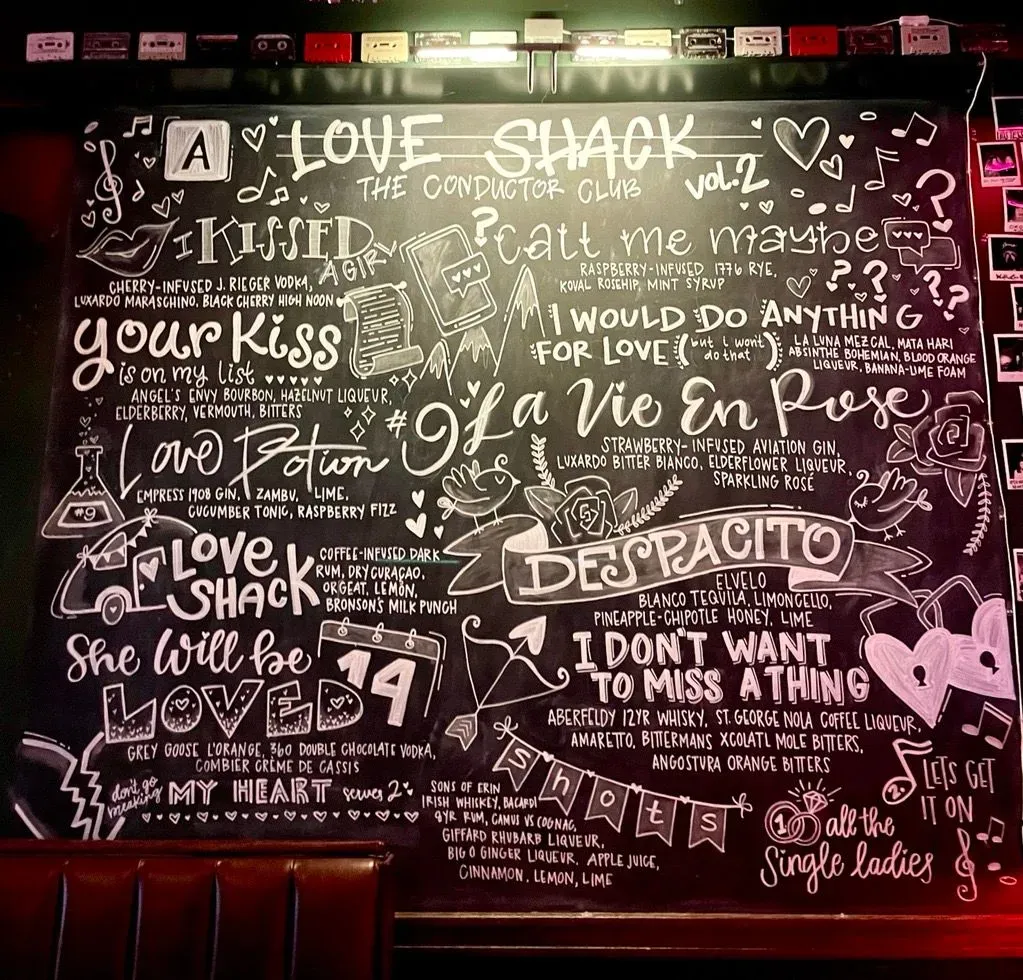 A LOVE SHACK
THE CONDUCTOR CLUB VOL.2
I KISSED
A GIRL
CHERRY-INFUSED J. RIEGER VODKA,
LUXARDO MARASCHINO, BLACK CHERRY HIGH NOON
your Kiss
is on my list
ANGEL'S ENVY BOURBON, HAZELNUT LIQUEUR,
ELDERBERRY, VERMOUTH, BITTERS
Love Potion #9
#9
EMPRESS 1908 GIN, ZAMBU, LIME,
CUCUMBER TONIC, RASPBERRY FIZZ
LOVE
SHACK
COFFEE-INFUSED DARK
RUM, DRY CURAÇAO,
ORGEAT, LEMON,
BRONSON'S MILK PUNCH
She Will be
LOVED
14
GREY GOOSE L'ORANGE, 360 DOUBLE CHOCOLATE VODKA,
COMBIER CRÈME DE CASSIS
don't go
breaking MY HEART serves 2
SONS OF ERIN
IRISH WHISKEY, BACARDI
9YR RUM, CAMUS VS COGNAC,
GIFFARD RHUBARB LIQUEUR,
BIG O GINGER LIQUEUR, APPLE JUICE,
CINNAMON, LEMON, LIME
? Call me maybe
?
RASPBERRY-INFUSED 1776 RYE,
KOVAL ROSEHIP, MINT SYRUP
? ? ? ?
I WOULD DO ANYTHING
FOR LOVE (but i won't
do that)
LA LUNA MEZCAL, MATA HARI
ABSINTHE BOHEMIAN, BLOOD ORANGE
LIQUEUR, BANANA-LIME FOAM
La Vie En Rose
STRAWBERRY-INFUSED AVIATION GIN,
LUXARDO BITTER BIANCO, ELDERFLOWER LIQUEUR,
SPARKLING ROSÉ
DESPACITO
ELVELO
BLANCO TEQUILA, LIMONCELLO,
PINEAPPLE-CHIPOTLE HONEY, LIME
I DON'T WANT
TO MISS A THING
ABERFELDY 12YR WHISKY, ST. GEORGE NOLA COFFEE LIQUEUR,
AMARETTO, BITTERMANS XCOLATL MOLE BITTERS,
ANGOSTURA ORANGE BITTERS
shots
1. all the
Single ladies
2. LETS GET
IT ON